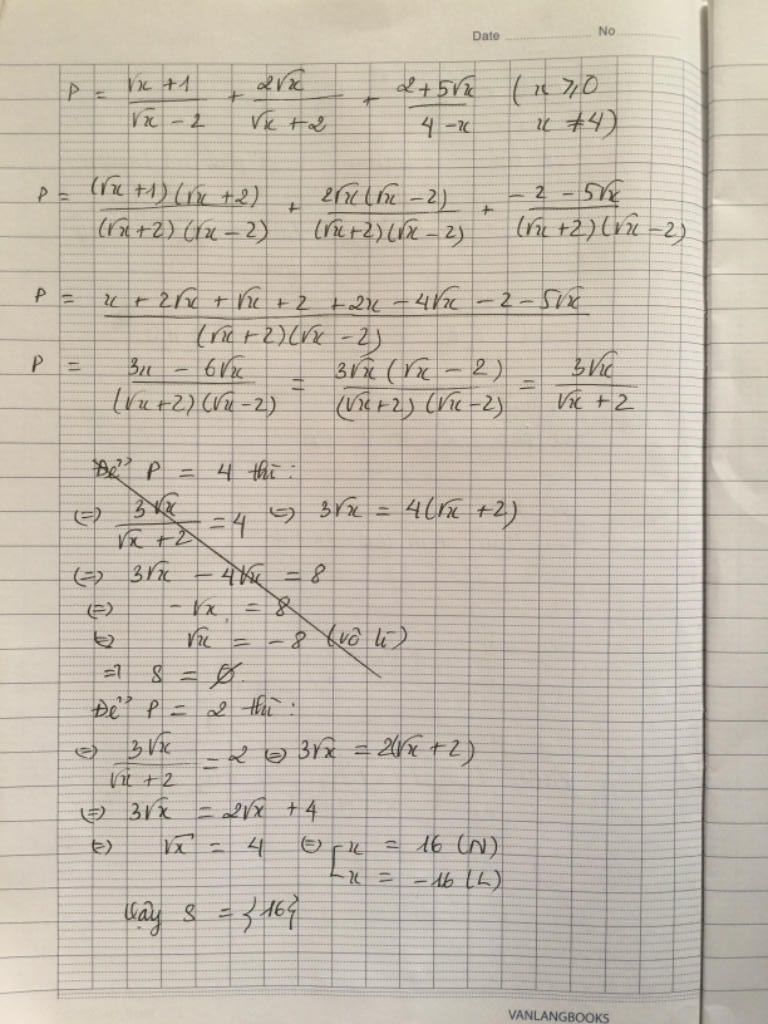 Date No
P = (√x + 1)/(√x - 2) + 2√x/(√x + 2) + (2 + 5√x)/(4 - x) ( x ⩾ 0
x ≠ 4)
P = (√x + 1)(√x + 2)/(√x + 2)(√x - 2) + 2√x(√x - 2)/(√x + 2)(√x - 2) + (-2 - 5√x)/(√x + 2)(√x - 2)
P = (x + 2√x + √x + 2 + 2x - 4√x - 2 - 5√x)/(√x + 2)(√x - 2)
P = (3x - 6√x)/(√x + 2)(√x - 2) = 3√x(√x - 2)/(√x + 2)(√x - 2) = 3√x/(√x + 2)
Để P = 4 thì :
(=) 3√x/(√x + 2) = 4 (=) 3√x = 4(√x + 2)
(=) 3√x - 4√x = 8
(=) -√x = 8
(=) √x = -8 (vô lí)
=) S = ∅.
Để P = 2 thì :
(=) 3√x/(√x + 2) = 2 (=) 3√x = 2(√x + 2)
(=) 3√x = 2√x + 4
(=) √x = 4 (=) [ x = 16 (N)
x = -16 (L)
Vậy S = {16}
VANLANGBOOKS